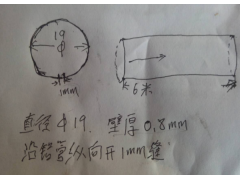 19
φ
1mm
6米
直径φ19. 壁厚0.8mm
沿铝管纵向开1mm缝